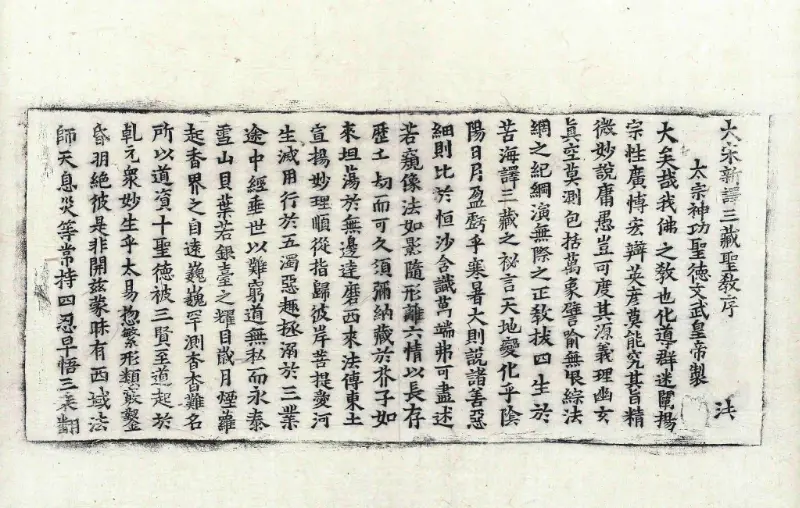 大宋新譯三藏聖教序
法
太宗神功聖德文武皇帝製
大矣哉我佛之教也化導群迷闡揚
宗性廣博宏辯英彦莫能究其旨精
微妙說庸愚豈可度其源義理幽玄
真空莫測包括萬象譬喻無垠綜法
網之紀綱演無際之正教拔四生於
苦海譯三藏之祕言天地變化乎陰
陽日月盈虧乎寒暑大則說諸善惡
細則比於恒沙含識萬端弗可盡述
若窺像法如影隨形離六情以長存
歷土劫而可久須彌納藏於芥子如
來坦蕩於無邊達磨西來法傳東土
宣揚妙理順從指歸彼岸菩提愛河
生滅用行於五濁惡趣拯溺於三業
途中經垂世以難窮道無私而永泰
雪山貝葉若銀臺之耀目歲月煙蘿
起香界之自遠巍巍罕測杳杳難名
所以道資十聖德被三賢至道起於
乹元衆妙生乎太易揔繁形類竅鑿
昏明絕彼是非開兹蒙昧有西域法
師天息灾等常持四忍早悟三乘翻